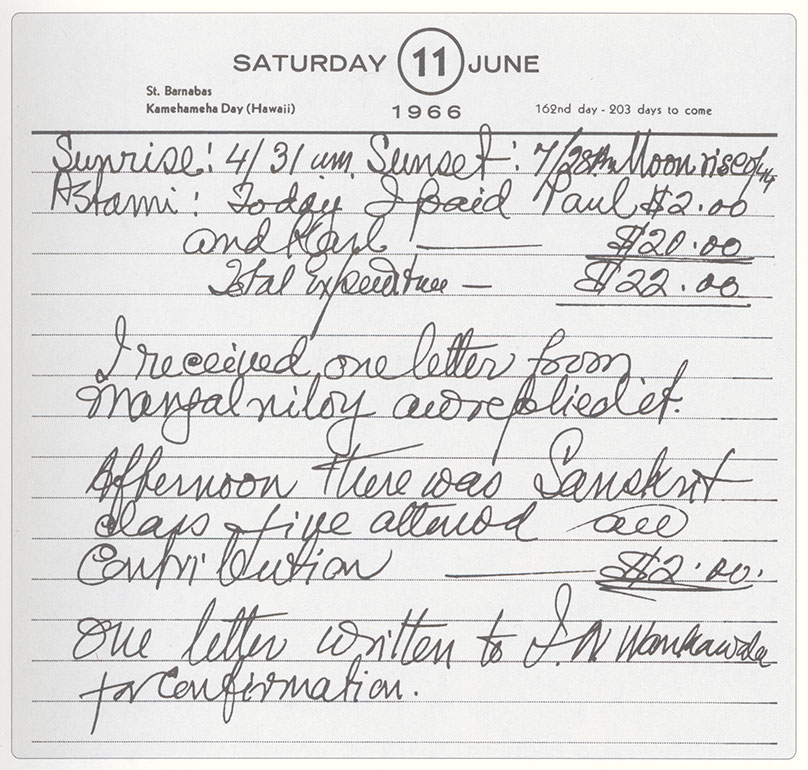 SATURDAY 11 JUNE
St. Barnabas
Kamehameha Day (Hawaii)
1966
162nd day - 203 days to come
Sunrise: 4/31 am Sunset: 7/28 Pm Moon rise
Astami: Today I paid Paul $2.00
and Karl — $20.00
Total Expenditure — $22.00
I received one letter from
Mangalniloy and replied it.
Afternoon there was Sanskrit
class five attend
Contribution — $2.00.
One letter written to
for Confirmation.